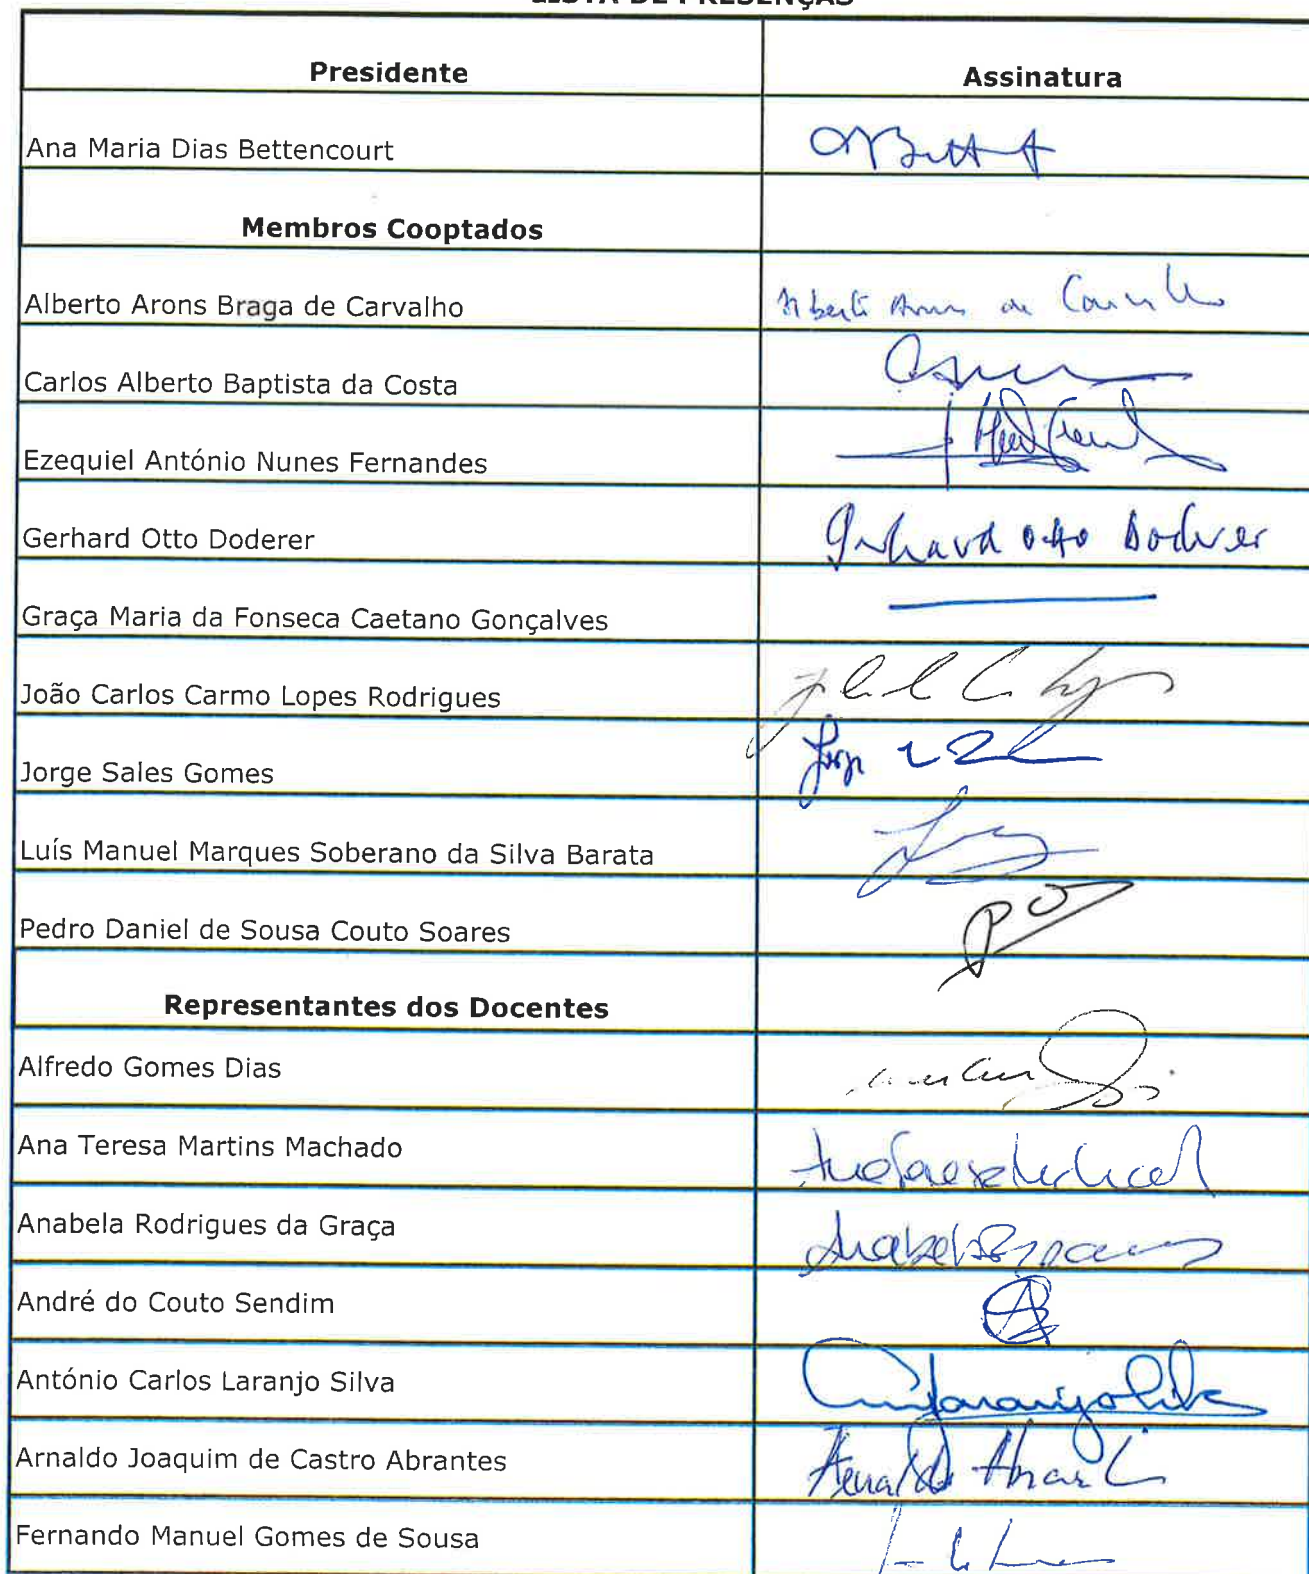 LISTA DE PRESENÇAS
Presidente Assinatura
Ana Maria Dias Bettencourt
Membros Cooptados
Alberto Arons Braga de Carvalho Alberto Arons de Carvalho
Carlos Alberto Baptista da Costa
Ezequiel António Nunes Fernandes
Gerhard Otto Doderer Gerhard Otto Doderer
Graça Maria da Fonseca Caetano Gonçalves
João Carlos Carmo Lopes Rodrigues
Jorge Sales Gomes Jorge
Luís Manuel Marques Soberano da Silva Barata
Pedro Daniel de Sousa Couto Soares
Representantes dos Docentes
Alfredo Gomes Dias
Ana Teresa Martins Machado
Anabela Rodrigues da Graça
André do Couto Sendim
António Carlos Laranjo Silva
Arnaldo Joaquim de Castro Abrantes
Fernando Manuel Gomes de Sousa